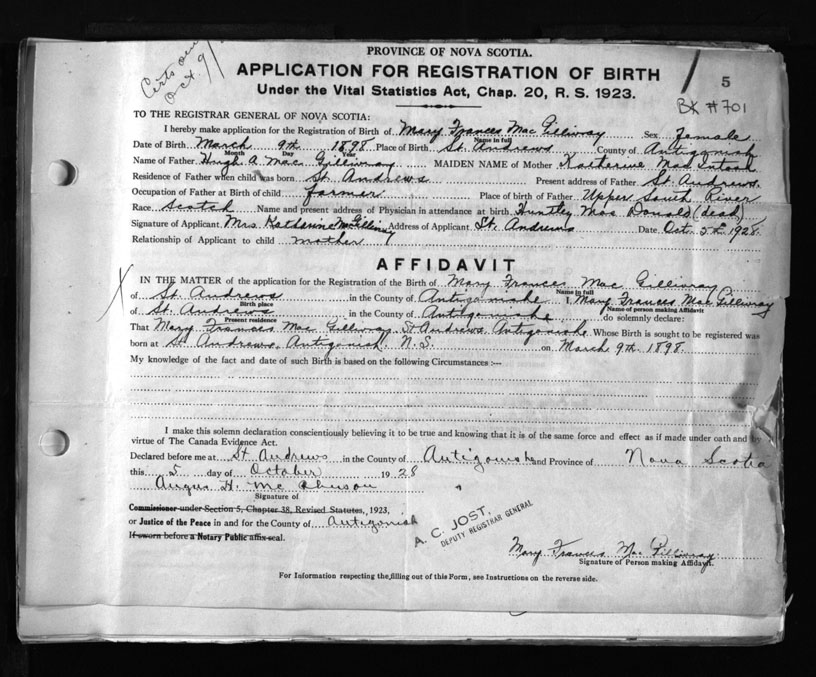 Certs sent
Oct. 9
PROVINCE OF NOVA SCOTIA.
APPLICATION FOR REGISTRATION OF BIRTH
Under the Vital Statistics Act, Chap. 20, R. S. 1923.
5
BK #701
TO THE REGISTRAR GENERAL OF NOVA SCOTIA:
I hereby make application for the Registration of Birth of Mary Frances Mac Gillivray Sex female
Name in full
Date of Birth March 9th 1898 Place of Birth St. Andrews County of Antigonish
Month Day Year
Name of Father Hugh A. Mac Gillivray MAIDEN NAME of Mother Katherine Mac Intosh
Residence of Father when child was born St. Andrews Present address of Father St. Andrews.
Occupation of Father at Birth of child farmer Place of birth of Father Upper South River
Race Scotch Name and present address of Physician in attendance at birth Huntley Mac Donald (dead)
Signature of Applicant Mrs. Katharine McGillivray Address of Applicant St. Andrews Date Oct. 5th 1928.
Relationship of Applicant to child mother
AFFIDAVIT
X
IN THE MATTER of the application for the Registration of the Birth of Mary Frances Mac Gillivray
Name in full
of St Andrews in the County of Antigonishe I, Mary Frances Mac Gillivray
Birth place Name of person making Affidavit
of St. Andrews in the County of Antigonishe do solemnly declare:
Present residence
That Mary Frances Mac Gillivray St Andrews Antigonishe Whose Birth is sought to be registered was
born at St. Andrews, Antigonish N.S. on March 9th 1898.
My knowledge of the fact and date of such Birth is based on the following Circumstances :—
I make this solemn declaration conscientiously believing it to be true and knowing that it is of the same force and effect as if made under oath and by
virtue of The Canada Evidence Act.
Declared before me at St Andrews in the County of Antigonishe and Province of Nova Scotia
this 5 day of October 1928
Angus H. Mc
Signature of
Commissioner under Section 5, Chapter 38, Revised Statutes, 1923,
or Justice of the Peace in and for the County of Antigonish
If sworn before a Notary Public affix seal.
A. C. JOST,
DEPUTY REGISTRAR GENERAL
Mary Frances Mac Gillivray
Signature of Person making Affidavit.
For Information respecting the filling out of this Form, see Instructions on the reverse side.